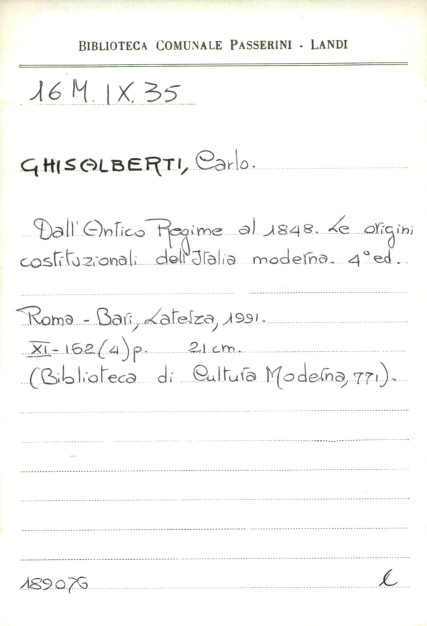 BIBLIOTECA COMUNALE PASSERINI - LANDI
16 M. IX. 35
GHISALBERTI, Carlo.
Dall'Antico Regime al 1848. Le origini
costituzionali dell'Italia moderna. 4° ed.
Roma - Bari, Laterza, 1991.
XI-162 (4) p. 21 cm.
(Biblioteca di Cultura Moderna, 771).
189076 l